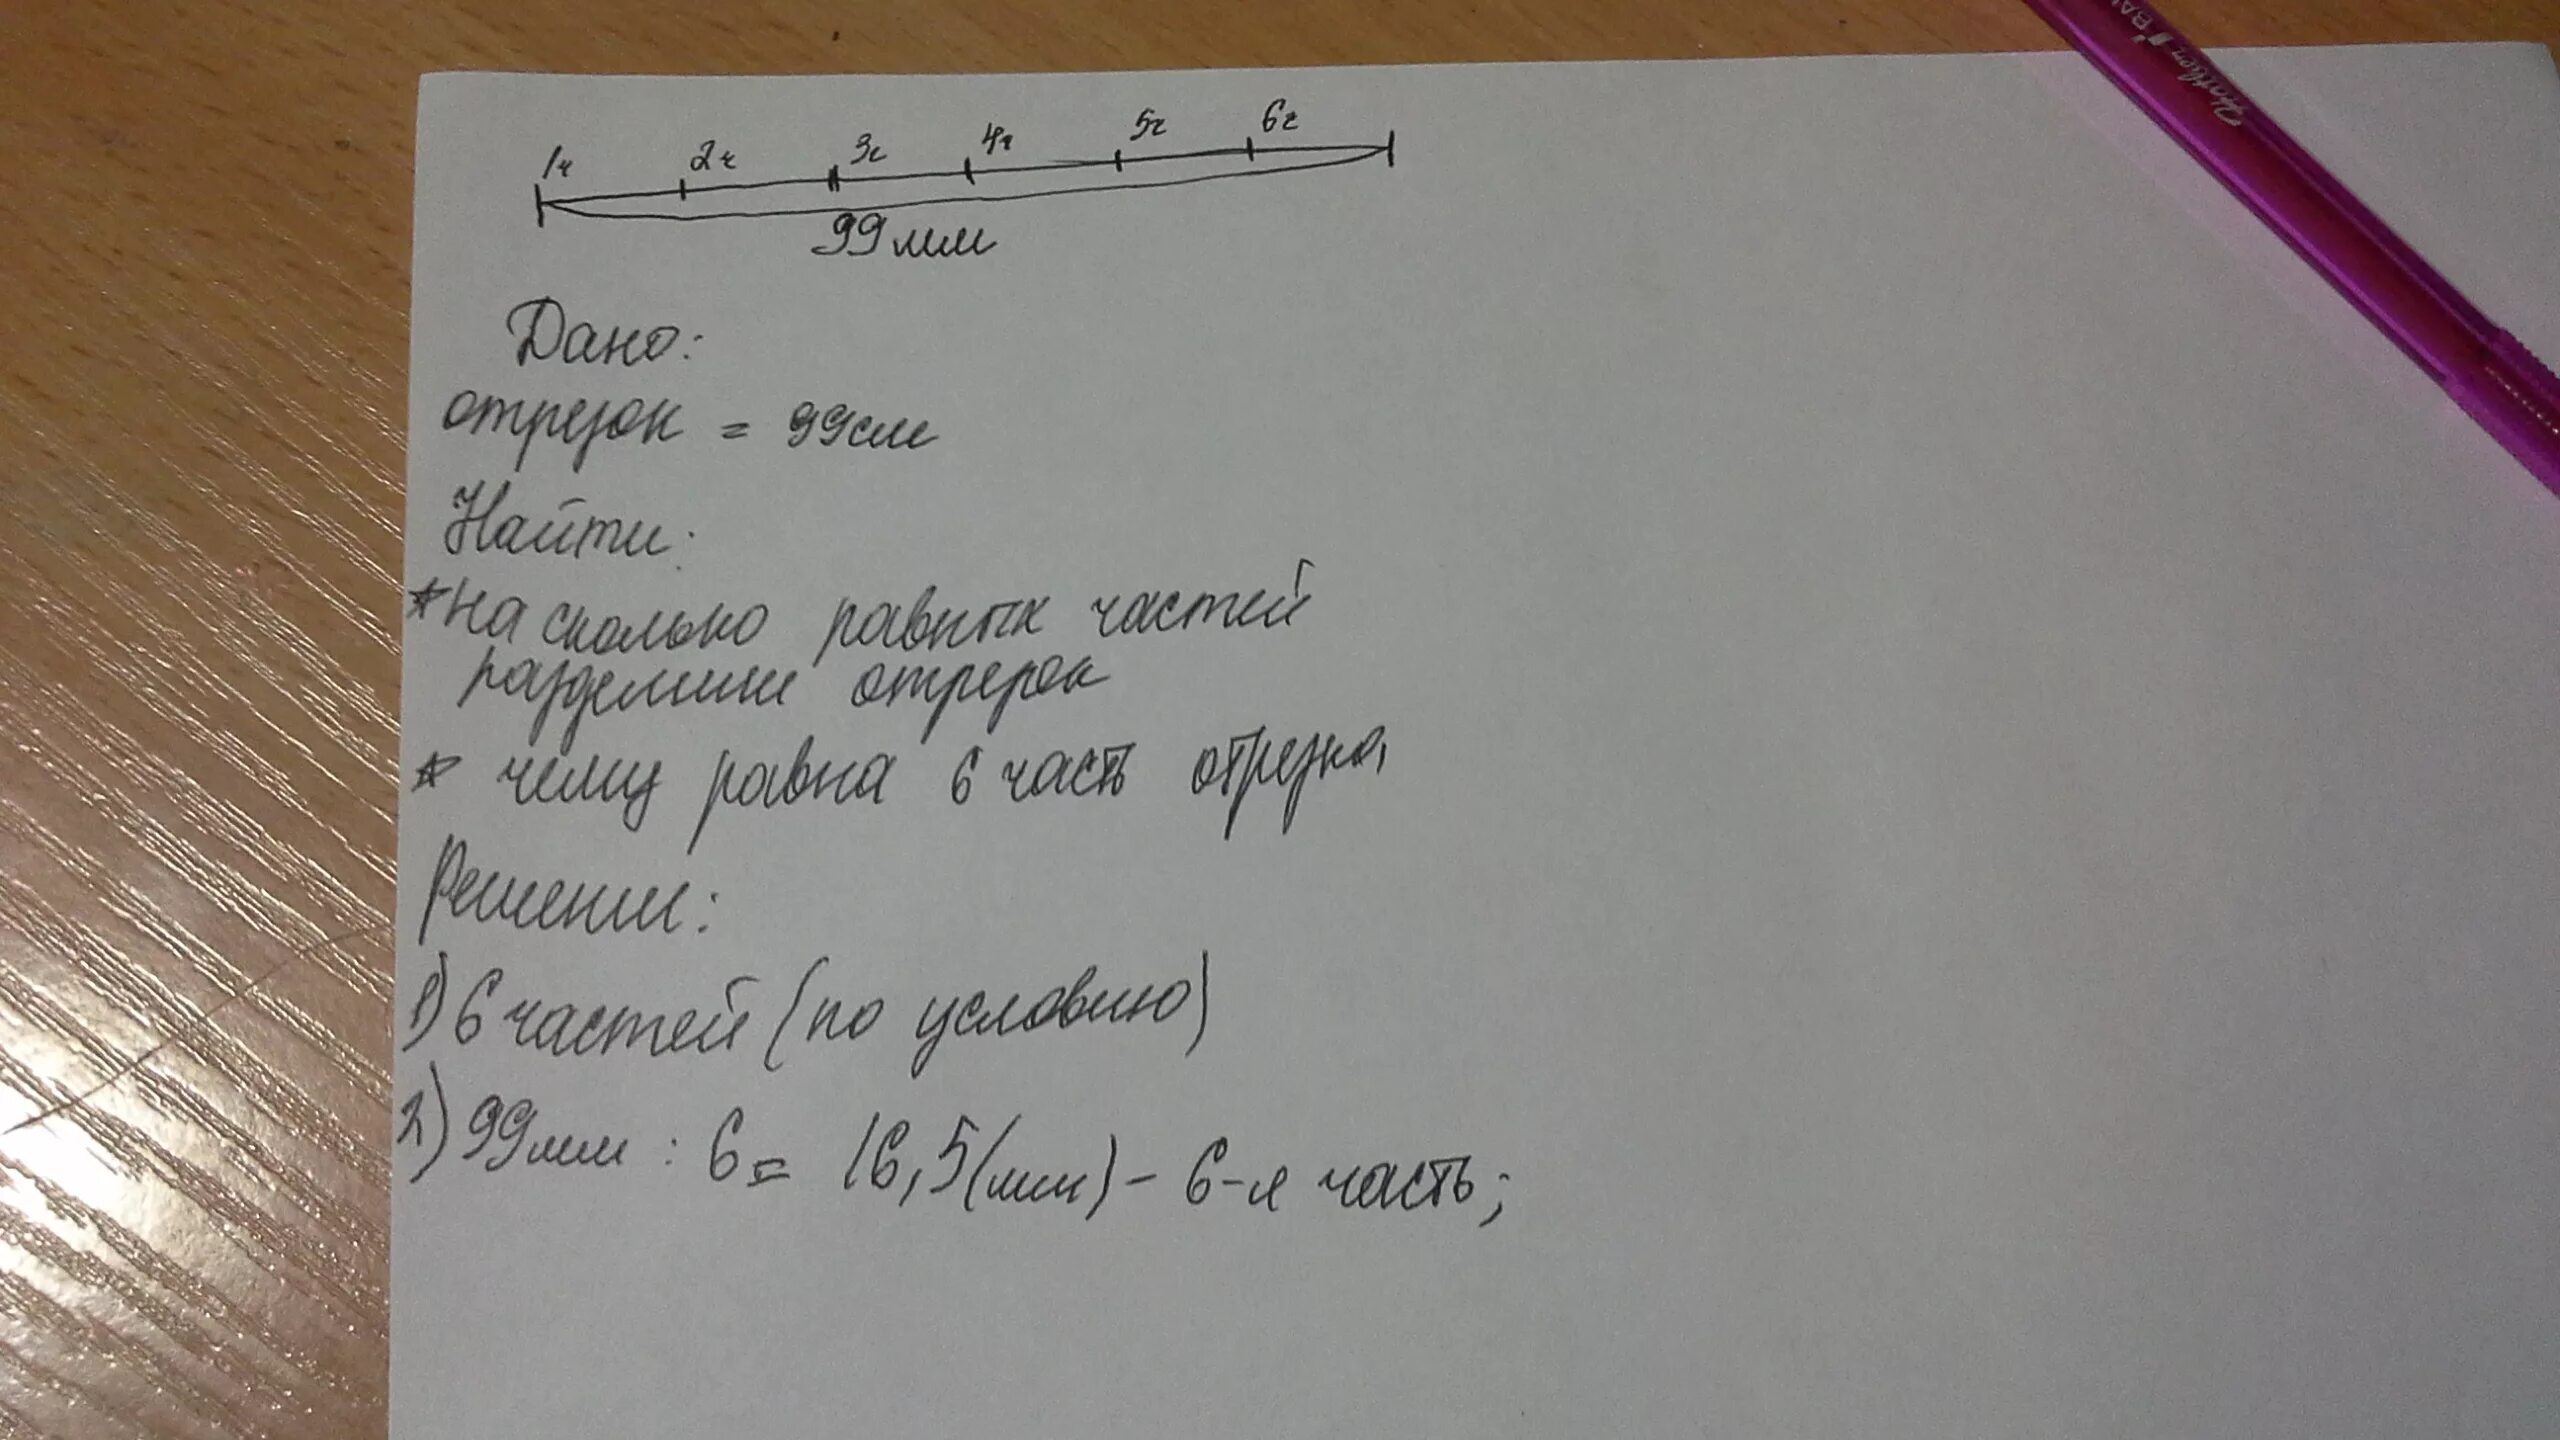 1ч 2ч 3ч 4ч 5ч 6ч
99 мм
Дано:
отрезок = 99см
Найти:
*на сколько равных частей
разделили отрезок
* чему равна 6 часть отрезка,
Решение:
1) 6 частей (по условию)
2) 99мм : 6 = 16,5(мм) - 6-я часть;